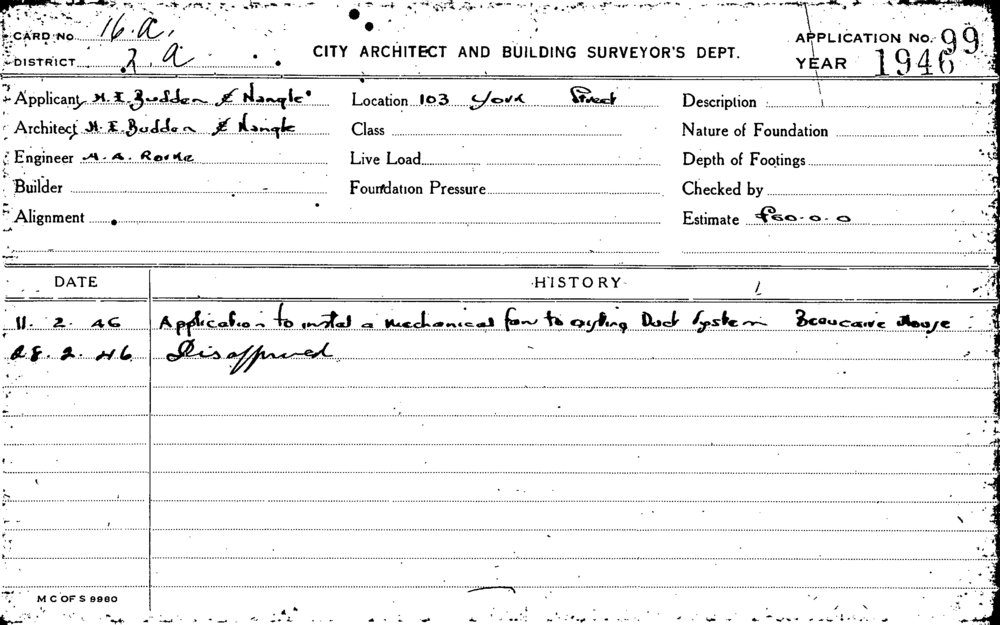 CARD No 16.a.
CITY ARCHITECT AND BUILDING SURVEYOR'S DEPT.
APPLICATION No. 99
DISTRICT 2.a
YEAR 1946
Applicant H. E. Budden & Nangle
Location 103 York Street
Description
Architect H. E. Budden & Nangle
Class
Nature of Foundation
Engineer H. A. Rorke
Live Load
Depth of Footings
Builder
Foundation Pressure
Checked by
Alignment
Estimate £60-0-0
DATE HISTORY
11. 2. 46 Application to instal a mechanical fan to existing Duct System Beaucaire House
28. 2. 46 Disapproved
M C OF S 9980